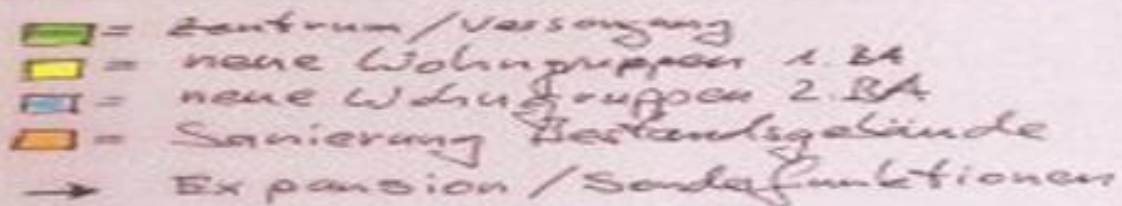 = Zentrum / Versorgung
= neue Wohngruppen 1. BA
= neue Wohngruppen 2. BA
= Sanierung Bestandsgebäude
→ Expansion / Sonderfunktionen